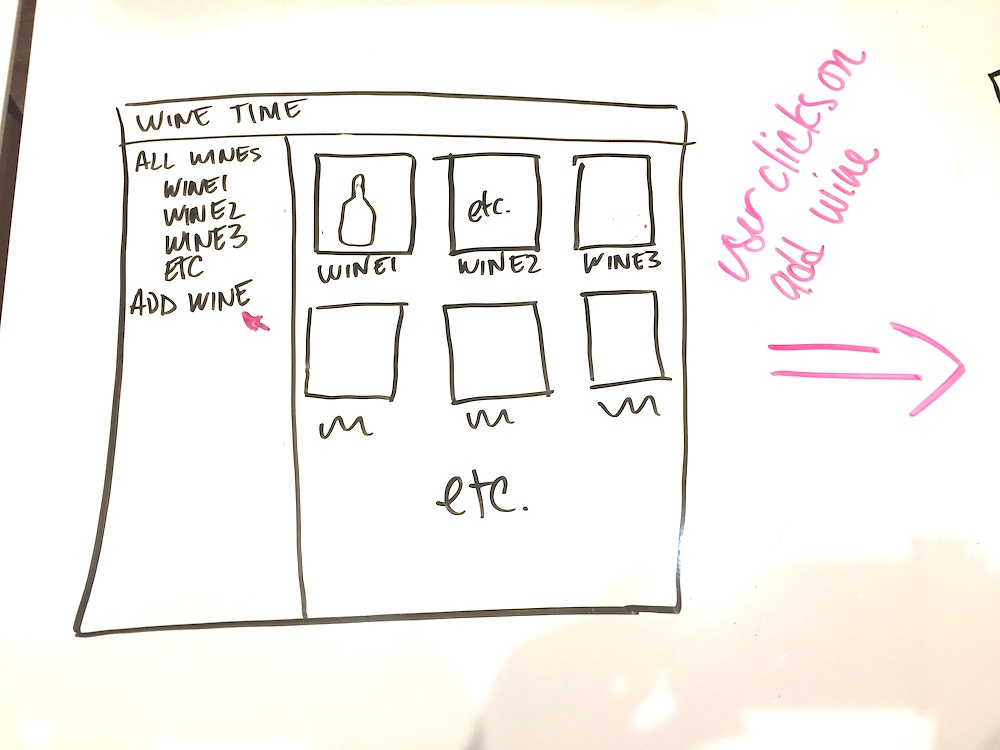 WINE TIME
ALL WINES
WINE1
WINE2
WINE3
ETC
ADD WINE
etc.
WINE1
WINE2
WINE3
etc.
user clicks on
add wine